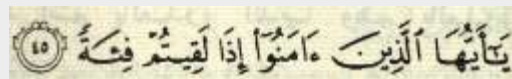 يَٰٓأَيُّهَا ٱلَّذِينَ ءَامَنُوٓا۟ إِذَا لَقِيتُمْ فِئَةً ٤٥